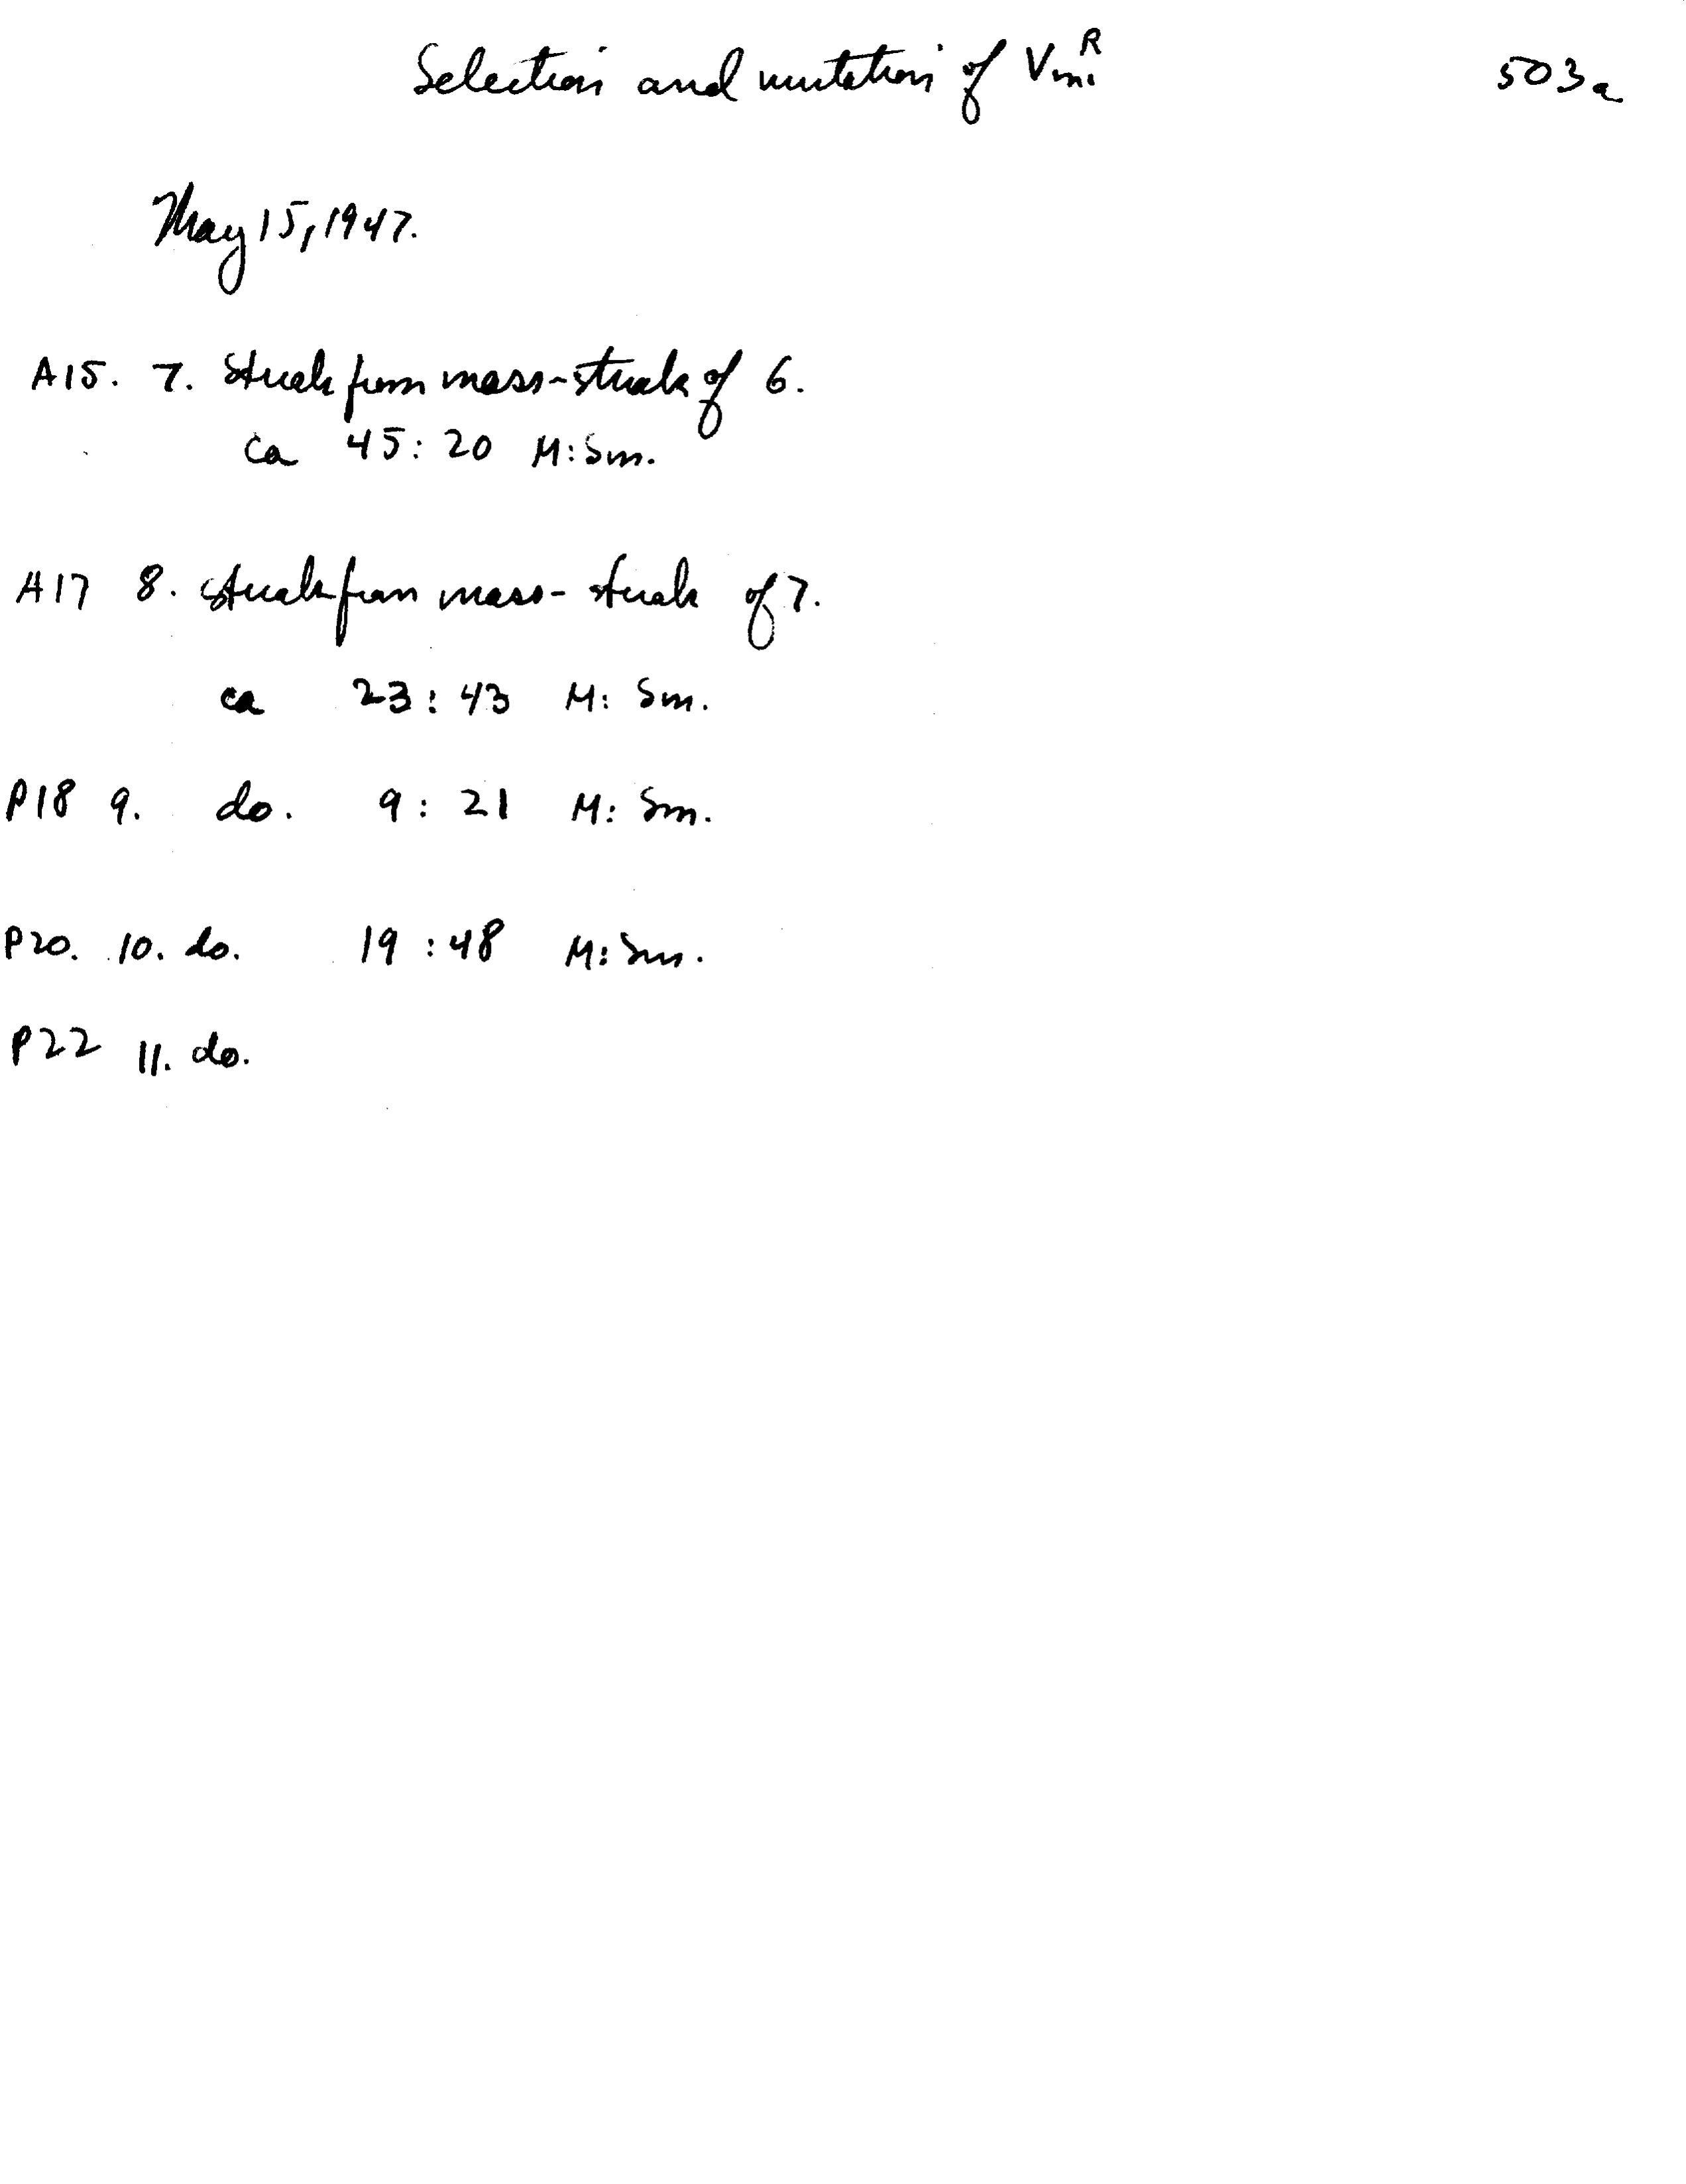 Selection and mutation of Vm^R 503a
May 15, 1947.
A15. 7. Streak from mass-streak of 6.
ca 45:20 M:Sm.
A17 8. streak from mass-streak of 7.
ca 23:43 M: Sm.
P18 9. do. 9:21 M: Sm.
P20. 10. do. 19:48 M:Sm.
P22 11. do.